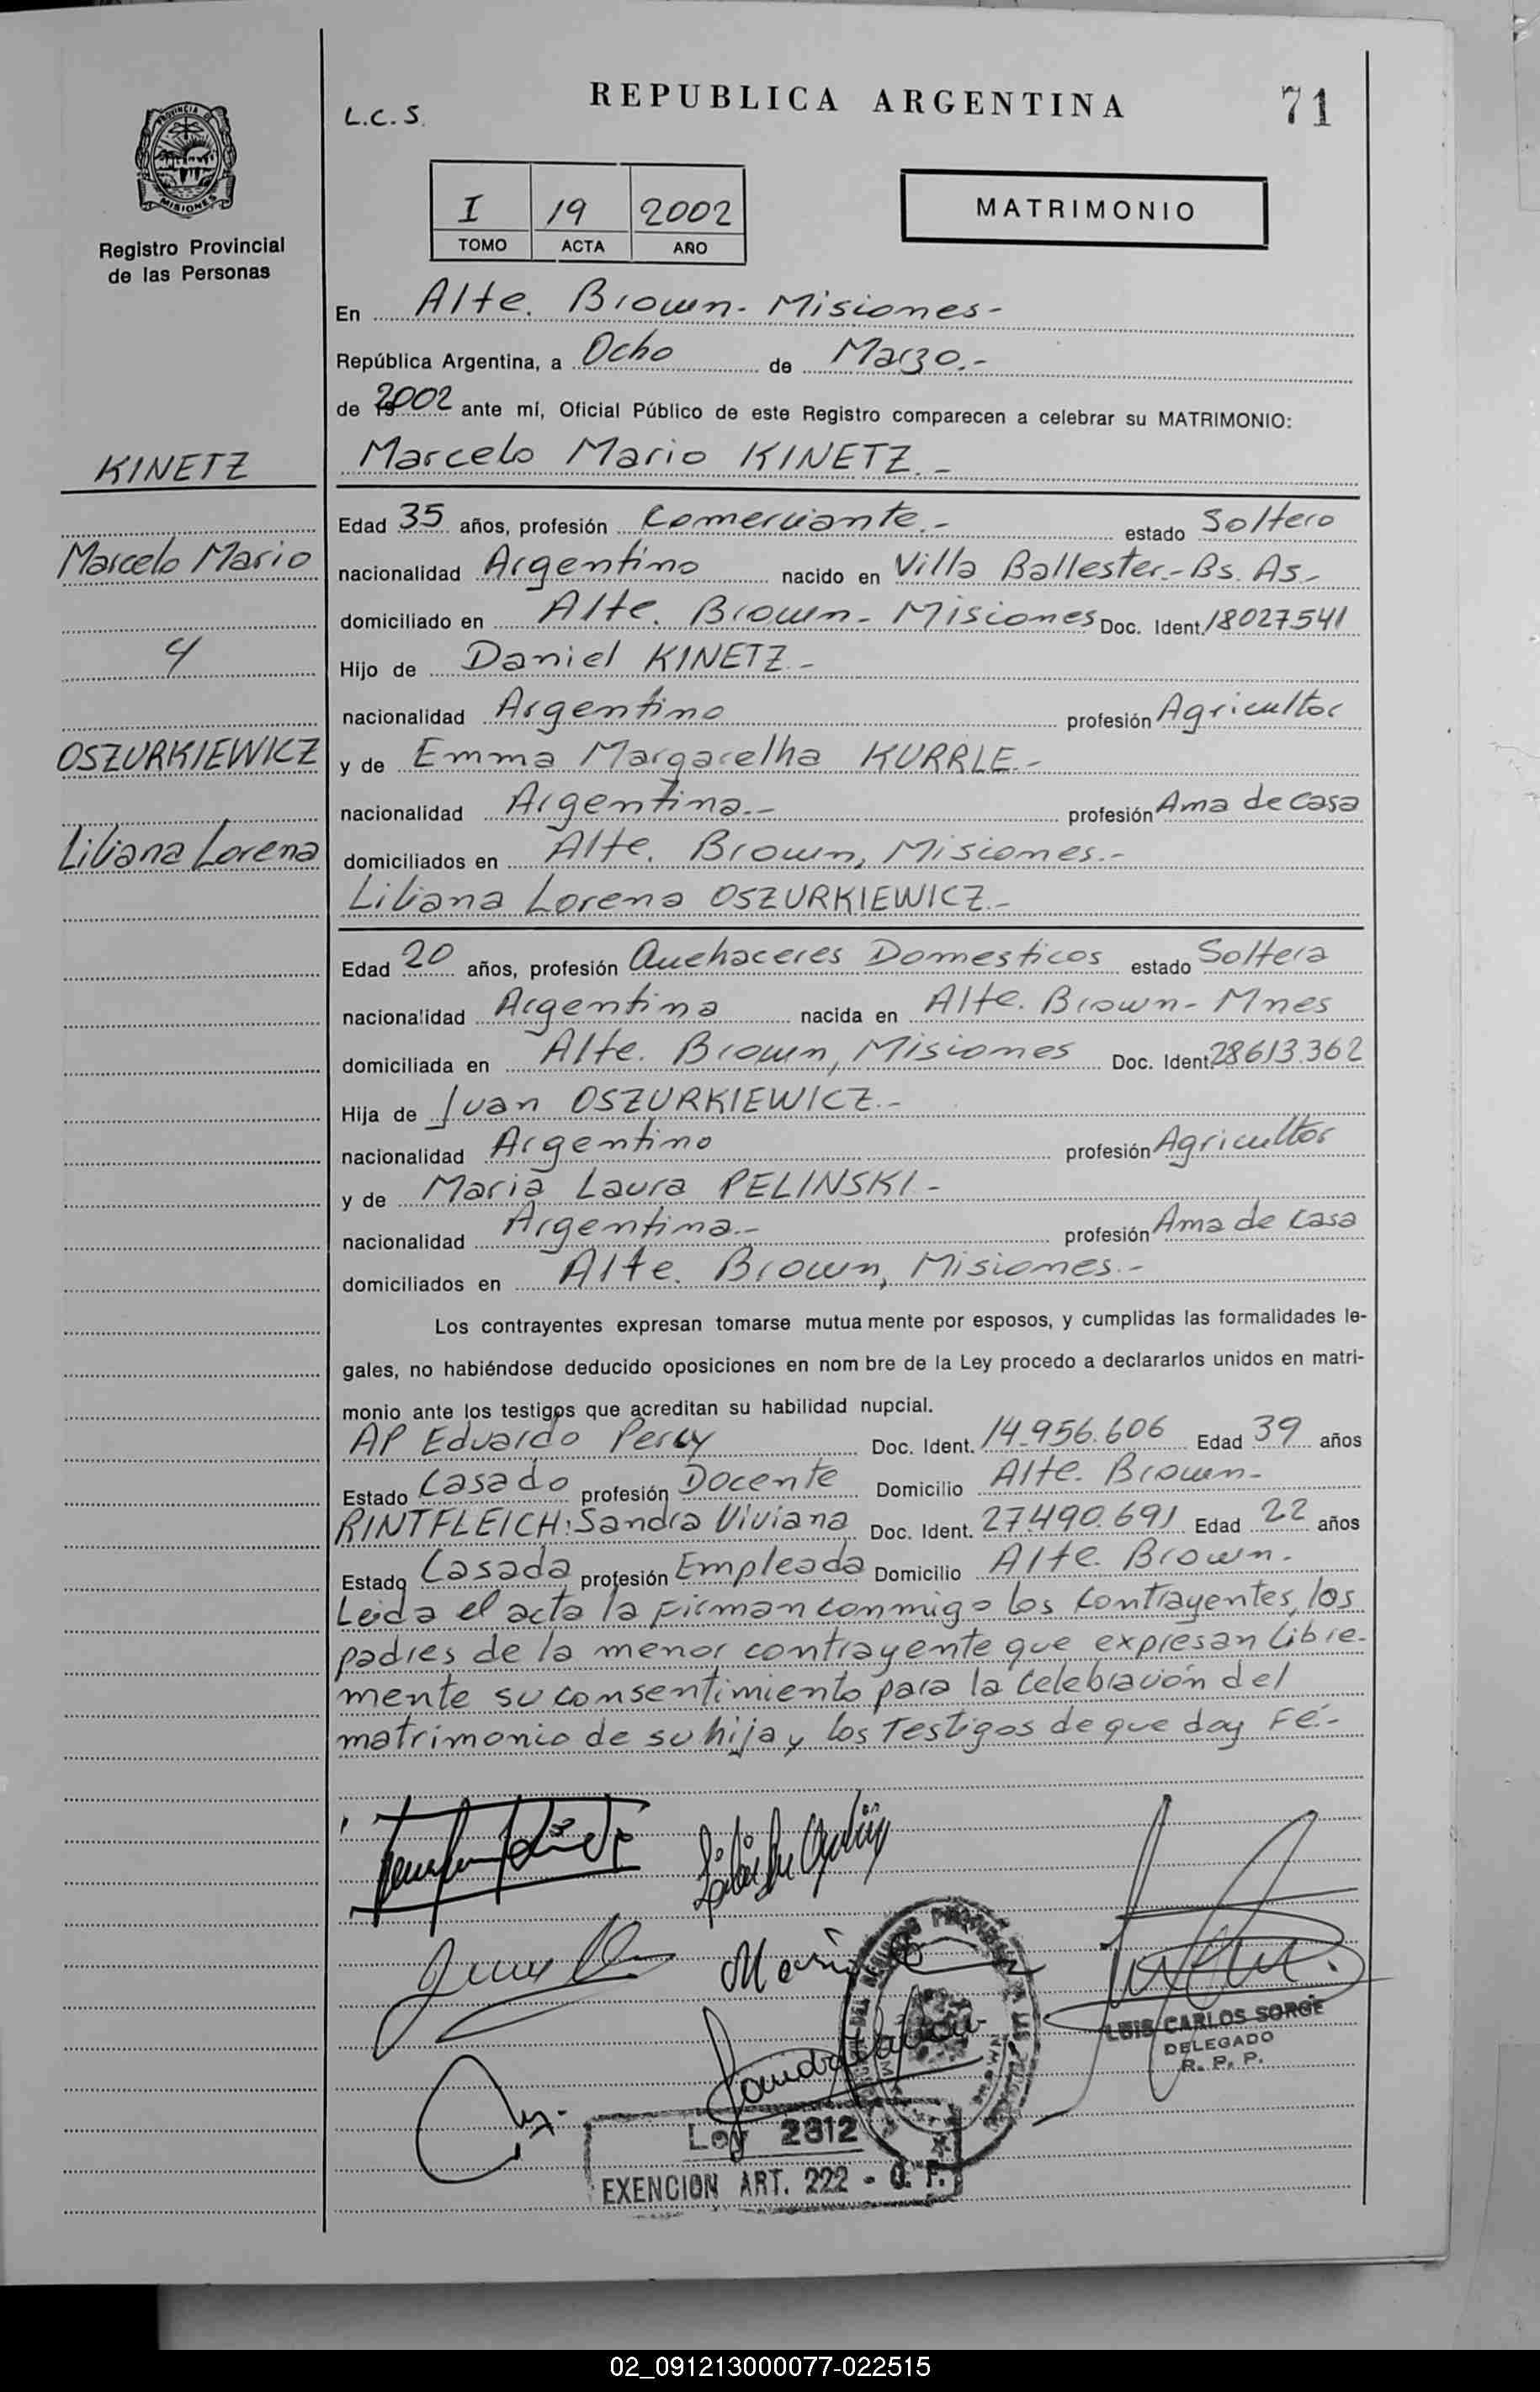 REPUBLICA ARGENTINA
71
L.C.S.
PROVINCIA DE
MISIONES
Registro Provincial
de las Personas
I 19 2002
TOMO ACTA AÑO
MATRIMONIO
En Alte. Brown - Misiones -
República Argentina, a Ocho de Marzo.-
de 2002 ante mí, Oficial Público de este Registro comparecen a celebrar su MATRIMONIO:
KINETZ
Marcelo Mario
y
OSZURKIEWICZ
Liliana Lorena
Marcelo Mario KINETZ.-
Edad 35 años, profesión Comerciante.- estado Soltero
nacionalidad Argentino nacido en Villa Ballester.- Bs. As.-
domiciliado en Alte. Brown - Misiones Doc. Ident. 18027541
Hijo de Daniel KINETZ.-
nacionalidad Argentino profesión Agricultor
y de Emma Margarelha KURRLE.-
nacionalidad Argentina.- profesión Ama de casa
domiciliados en Alte. Brown, Misiones.-
Liliana Lorena OSZURKIEWICZ.-
Edad 20 años, profesión Quehaceres Domesticos estado Soltera
nacionalidad Argentina nacida en Alte. Brown - Mnes
domiciliada en Alte. Brown, Misiones Doc. Ident. 28613.362
Hija de Juan OSZURKIEWICZ.-
nacionalidad Argentino profesión Agricultor
y de Maria Laura PELINSKI -
nacionalidad Argentina.- profesión Ama de casa
domiciliados en Alte. Brown, Misiones.-
Los contrayentes expresan tomarse mutua mente por esposos, y cumplidas las formalidades le-
gales, no habiéndose deducido oposiciones en nom bre de la Ley procedo a declararlos unidos en matri-
monio ante los testigos que acreditan su habilidad nupcial.
AP Eduardo Percy Doc. Ident. 14.956.606 Edad 39 años
Estado Casado profesión Docente Domicilio Alte. Brown -
RINTFLEICH: Sandra Viviana Doc. Ident. 27.490.691 Edad 22 años
Estado Casada profesión Empleada Domicilio Alte. Brown.
Leida el acta la firman conmigo los contrayentes, los
padres de la menor contrayente que expresan libre-
mente su consentimiento para la celebración del
matrimonio de su hija y los Testigos de que doy Fé.-
LUIS CARLOS SORGE
DELEGADO
R. P. P.
Ley 2812
EXENCION ART. 222 - C. F.
02_091213000077-022515